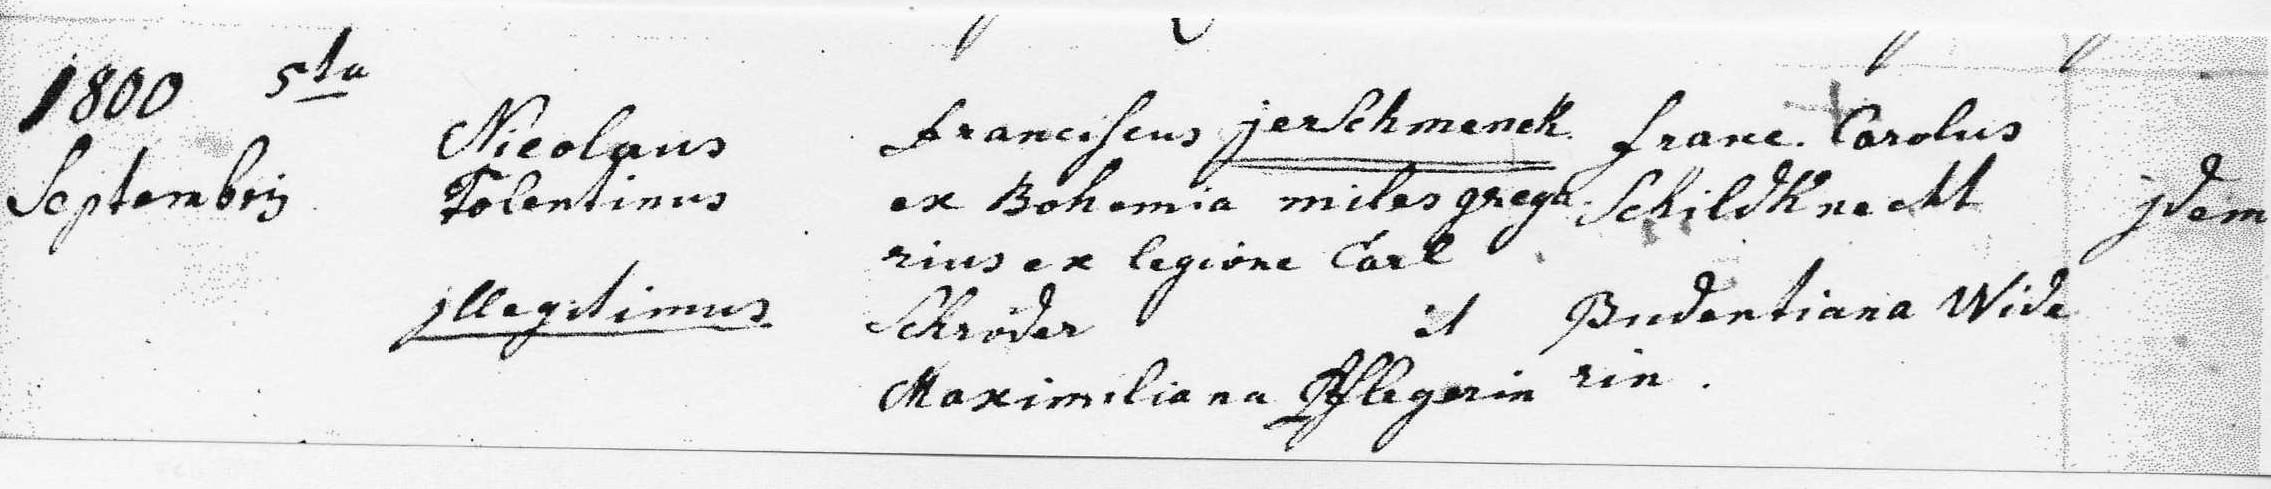 1800 5ta
Septembris
Nicolaus
Tolentinus
jllegitimus
Franciscus jerschmenek
ex Bohemia miles grega
rius ex legione Carl
Schröder et
Maximiliana Pflegerin
Franc. Carolus
Schildknecht
Budentiana Wide
rin.
jdem